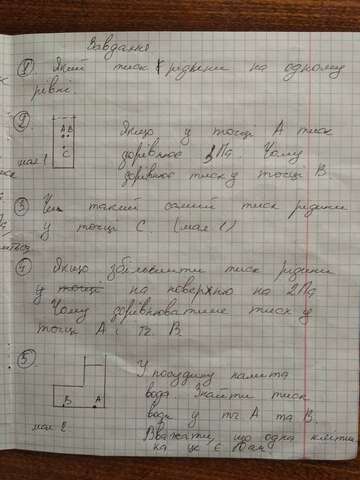 Завдання
1 Який тиск рідини на одному
рівні.
2 Якщо у точці А тиск
А В
С
дорівнює Па. Чому
мал 1
дорівнює тиск у точці В.
3 Чи такий самий тиск рідини
у точці С. (мал 1)
4 Якщо збільшити тиск рідини
у на поверхню на 2Па
Чому дорівнюватиме тиск у
точці А і тч В
5 У посудину налита
вода. Знайти тиск
В А
води у тч А та В.
мал 2
Вважати, що одна кліти
ка це є